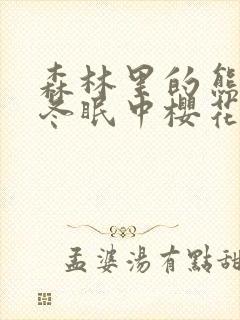 森林里的熊
冬眠中櫻花
孟婆湯有點甜